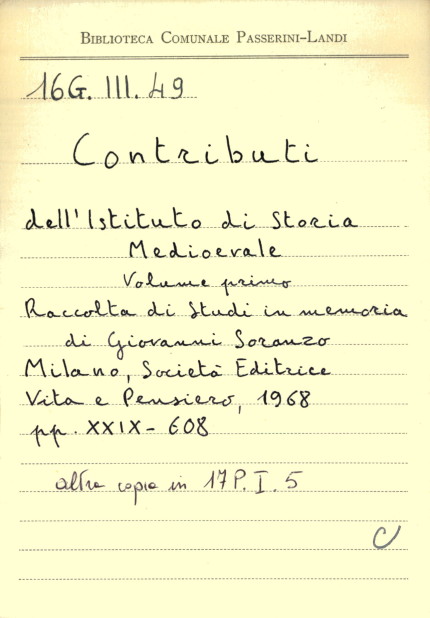 BIBLIOTECA COMUNALE PASSERINI-LANDI
16G. III. 49
Contributi
dell'Istituto di Storia
Medioevale
Volume primo
Raccolta di Studi in memoria
di Giovanni Soranzo
Milano, Società Editrice
Vita e Pensiero, 1968
pp. XXIX - 608
altra copia in 17P. I. 5
C